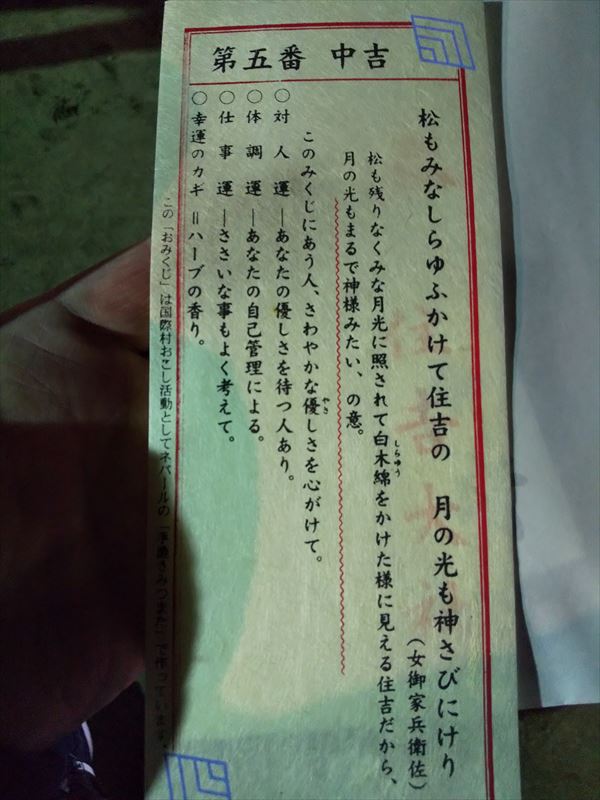 第五番 中吉
松もみなしらゆふかけて住吉の 月の光も神さびにけり
(女御家兵衛佐)
松も残りなくみな月光に照されて白木綿をかけた様に見える住吉だから、
しらゆう
月の光もまるで神様みたい、の意。
このみくじにあう人、さわやかな優しさを心がけて。
やさ
○対人運―あなたの優しさを待つ人あり。
○体調運―あなたの自己管理による。
○仕事運―ささいな事もよく考えて。
○幸運のカギ=ハーブの香り。
この「おみくじ」は国際村おこし活動としてネパールの「手漉きみつまた」で作っています。